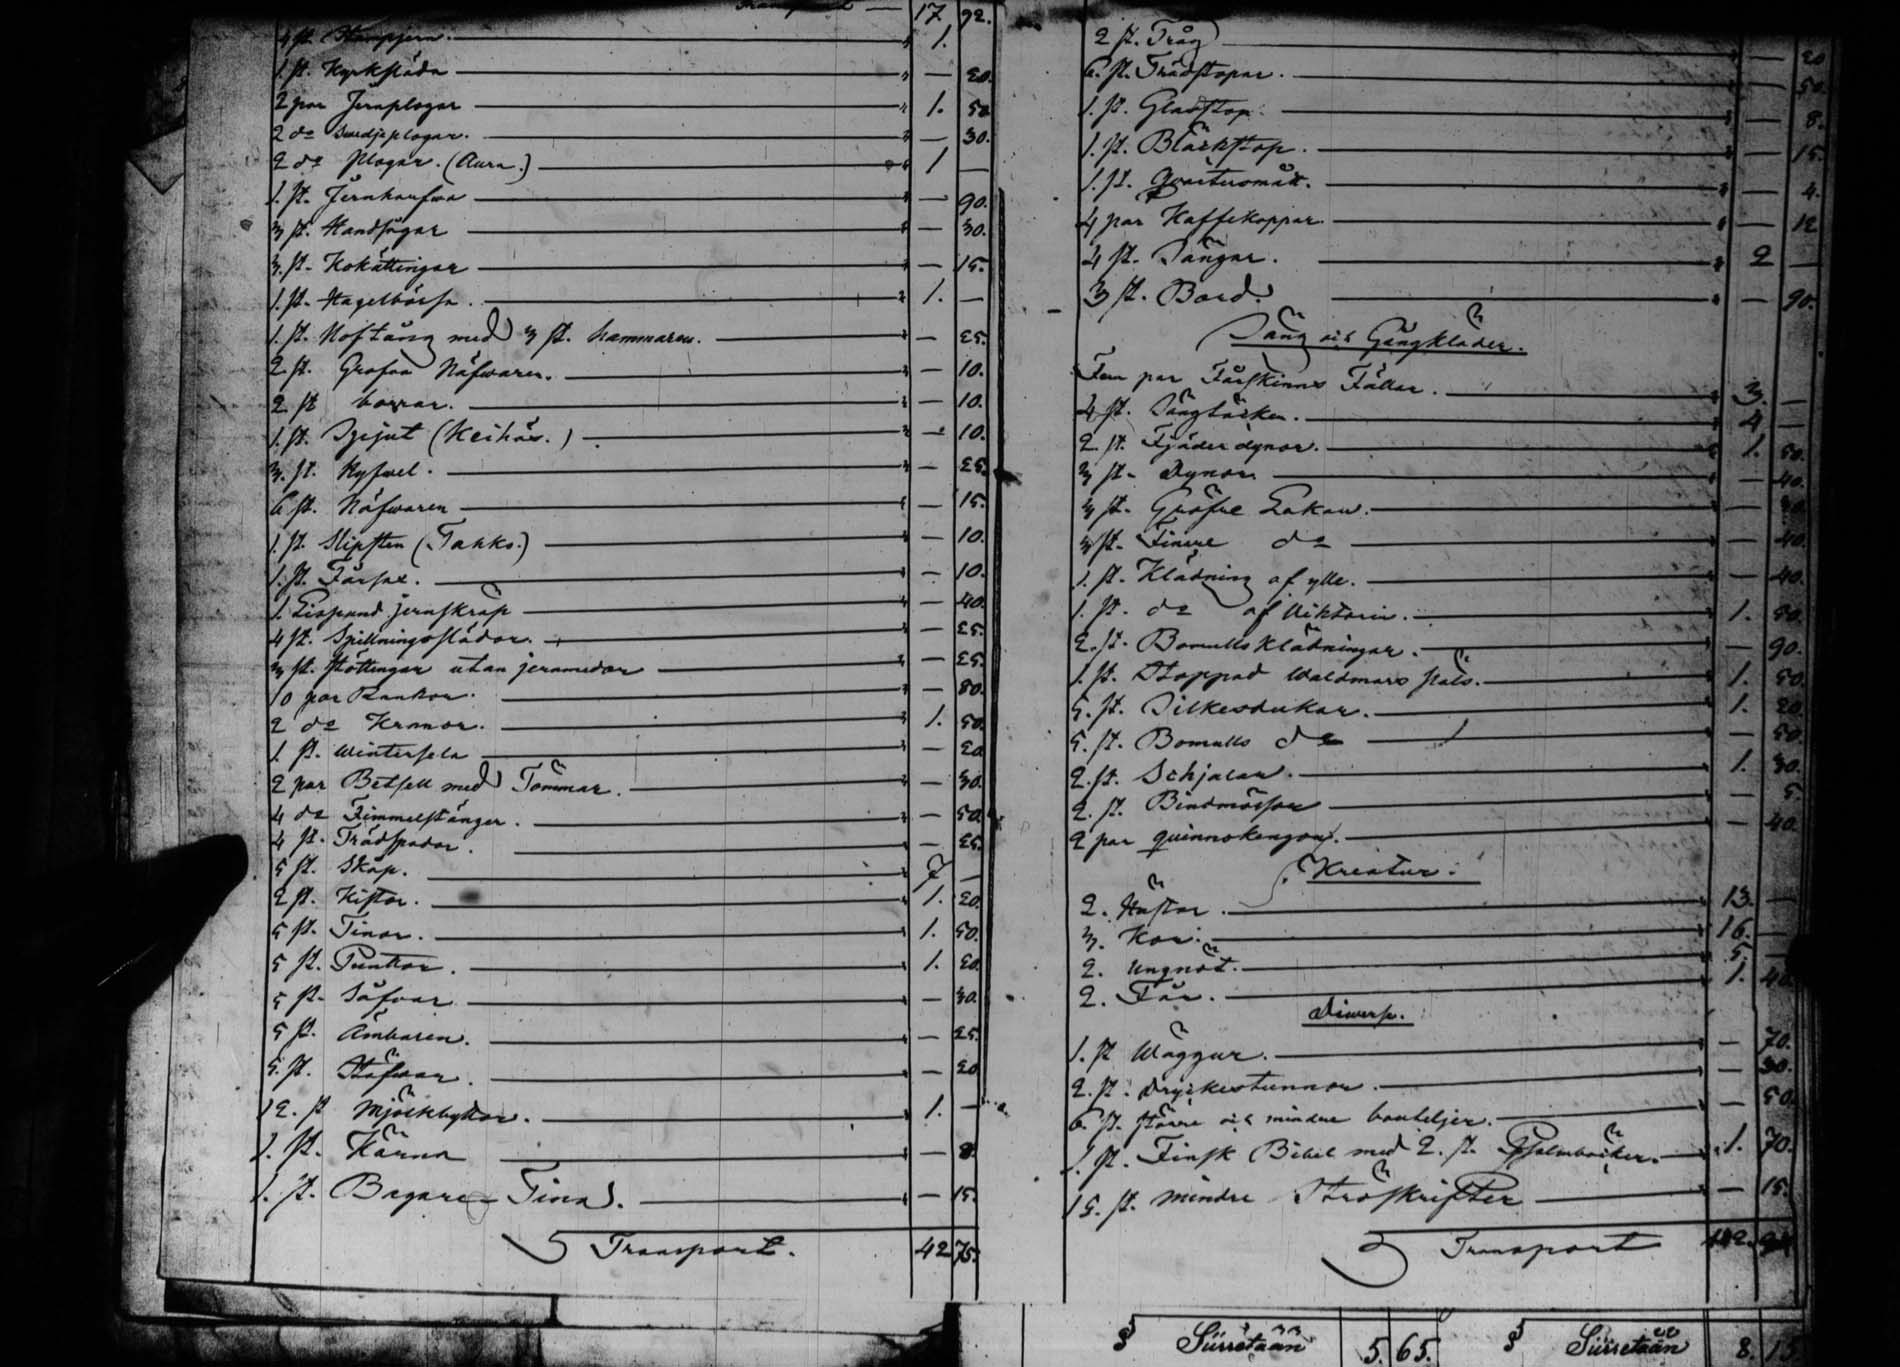 Transport — 17 92.
4 st. — " 1.
1. st. Kyrksläda — " — 20.
2 par Jernplogar — " 1. 50
2 do Swedjeplogar. — " — 30.
2 do plogar. (Aura.) — " 1 —
1. st. Jernharfwa — " — 90.
3 st. Handsågar — " — 30.
3. st. Kokättingar — " — 15.
1. st. Hagelbössa. — " 1. —
1. st. Hoftång med 3 st. hammaren. — " — 25.
2 st. Grofva Näfwaren. — " — 10.
2 st borrar. — " — 10.
1. st. Spjut (Keihäs.) — " — 10.
3. st. Kyfwel. — " — 25.
6 st. Näfwaren — " — 15.
1. st. Slipsten (Tahko.) — " — 10.
1. st. — " — 10.
1. Lispund jernskrap — " — 40.
4 st. Spillningsslädor. — " — 25.
3 st. Stöttingar utan jernmedar — " — 25.
10 par Rankor. — " — 80.
2 do Krmor. — " 1. 50.
1 st. Wintersela — " — 20
2 par Betsell med Tömmar. — " — 30.
4 do Fimmelstänger. — " — 50.
4 st. Trädspadar. — " — 25.
5 st. Skåp. — " 7 —
2 st. Kistor. — " 1. 20.
5 st. Tinor. — " 1. 50.
5 st. Punkor. — " 1. 20.
5 st. Såfvar — " — 30.
5 st. Ämbaren. — " — 25.
5. st. Stäfwar. — " — 20
12. st Mjölkbyttor. — " 1. —
1. st. Kärna — " — 8.
1. st. Bagare-Tina. — " — 15.
Transport. 42 75.
2 st. Tråg — " — 20
6. st. Trädstopar. — " — 50.
1. st. Glasstop. — " — 8.
1. st. Bläckstop. — " — 15.
1. st. Qvartersmått. — " — 4.
4 par Kaffekoppar. — " — 12
4 st. Sängar. — " 2 —
3 st. Bord. — " — 90.
Säng och Gångkläder.
Fem par Fårskinns Fällar. — " 3. —
4 st. Sängtäcken. — " 4 —
2. st. Fjäderdynor. — " 1. 50.
3 st. Dynor. — " — 40.
3 st. Gröfre Lakan. — " —
3 st. Finare do — " — 40.
1. st. Klädning af ylle. — " — 40.
1. st. do af Viktorin. — " 1. 50.
2. st. Bomullsklädningar. — " — 90.
1. st. Stoppad Waldmars päls. — " 1. 50.
5. st. Silkesdukar. — " 1. 20.
5. st. Bomulls do — " — 50.
2. st. Schjalar. — " 1. 30.
2. st. Bindmössor — " — 5.
2 par quinnokängor. — " — 40.
Kreatur.
2. Hästar. — " 13. —
3. Kor. — " 16. —
2. Ungnöt. — " 5. —
2. Får. — " 1. 40
Diverse.
1. st Waggur. — " — 70.
2. st. Dryckestunnor. — " — 30.
6. st. större och mindre bouteljer. — " — 50.
1. st. Finsk Bibel med 2. st. Psalmböcker. — " 1. 70.
15. st. mindre Ströskrifter — " — 15.
Transport
§ Siirretään 5. 65. § Siirretään 8. 15